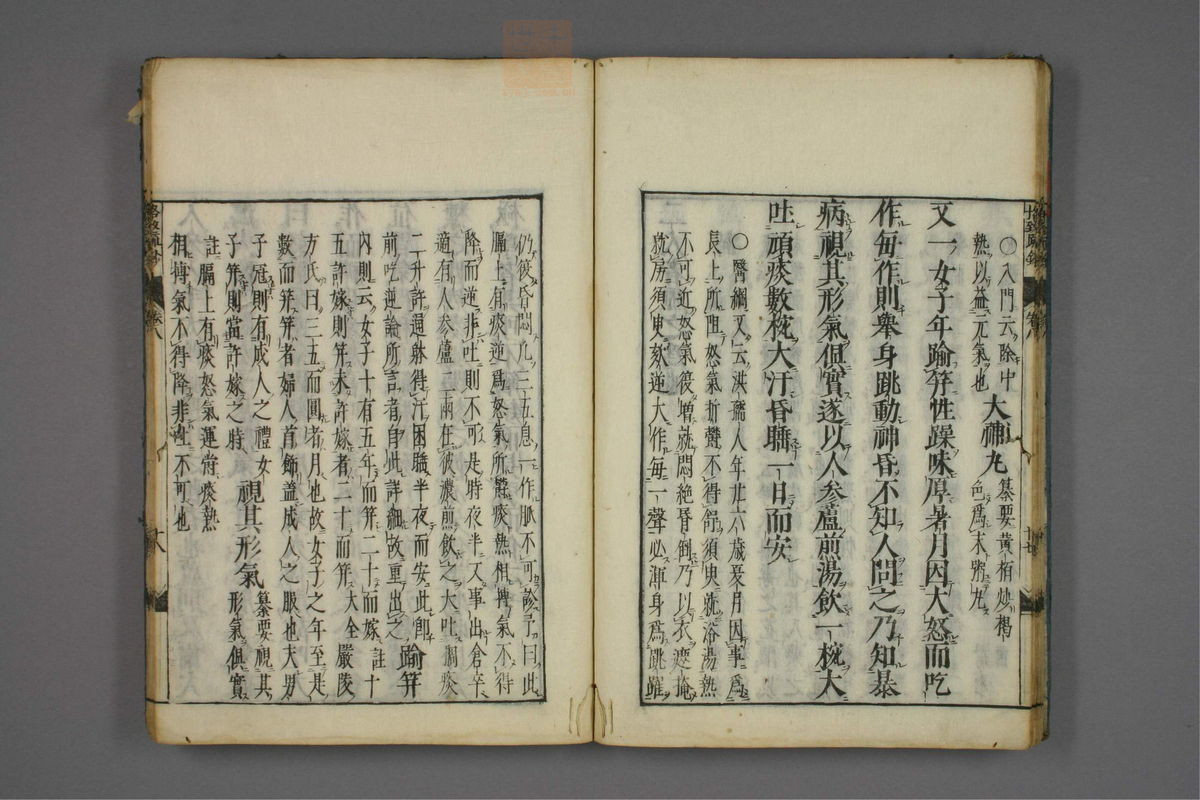 ○入門云除中
熱以益元氣也 大補丸 纂要黃栢炒褐
色爲末粥丸
又一女子年踰笄性躁味厚暑月因大怒而吃
作每作則舉身跳動神昏不知人問之乃知暴
病視其形氣俱實遂以人參蘆煎湯飲一椀大
吐頑痰數椀大汗昏睡一日而安
○醫綱又云洪
人年廿六歲夏月因事爲
長上所阻怒氣折聲不得舒須臾就浴湯熱
不可近怒氣復增就悶絕昏倒乃以衣遮掩
就房須臾欬逆大作每一聲必渾身爲跳躍
仍復昏悶凡三五息一作脈不可診予曰此
膈上有痰逆爲怒氣所
痰熱相摶氣不得
降而逆非吐則不可是時夜半又事出倉卒
適有人參蘆二兩在彼濃煎飲之大吐稠痰
二升許還躰得汗困睡半夜而安此卽
前吃逆論所言者自此詳細故重出之 踰笄
內則云女子十有五年而笄二十而嫁 註十
五許嫁則笄未許嫁者二十而笄 大全嚴陵
方氏曰三五而圓者月也故女子之年至是
數而笄笄者婦人首飾蓋成人之服也夫男
子冠則有成人之禮女
子笄則當許嫁之時 視其形氣 纂要視其
形氣俱實
註膈上有痰怒氣運
痰熱
相摶氣不得降非吐不可也
卷八
十七
卷八
十八